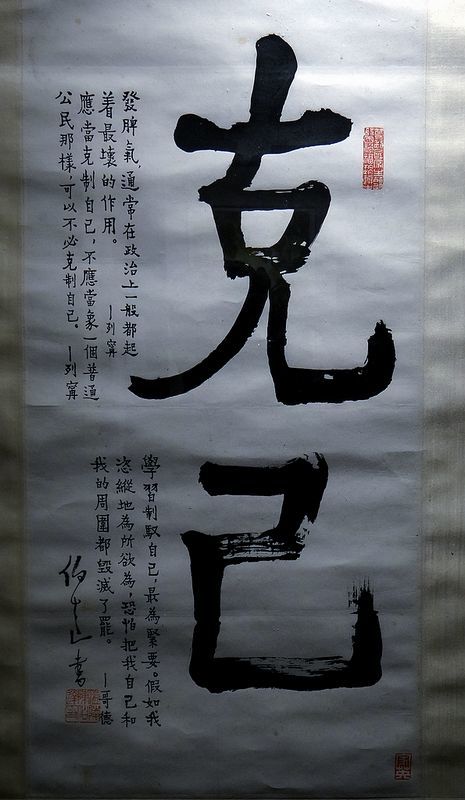 克己
發脾氣，通常在政治上一般都起
着最壞的作用。 —列寧
應當克制自己，不應當象一個普通
公民那樣，可以不必克制自己。—列寧
學習制馭自己，最為緊要。假如我
恣縱地為所欲為，恐怕把我自己和
我的周圍都毀滅了罷。 —哥德
伯 書